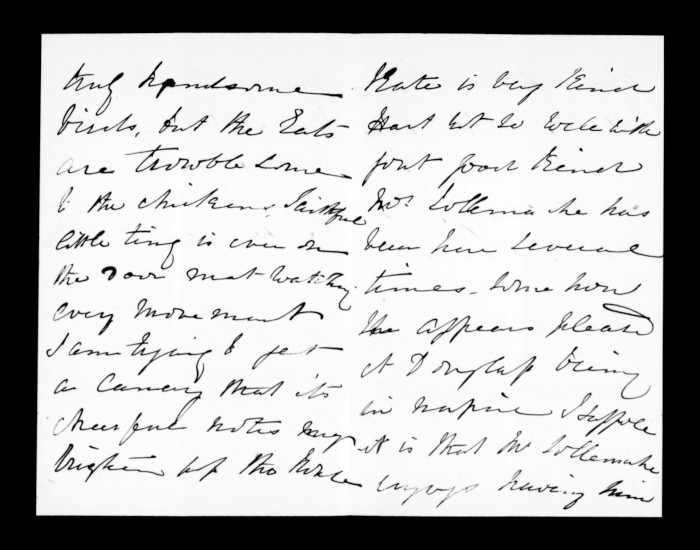 truly handsome
birds, but the Cats
are trowblesome
to the chickens, faithful
little ting is ever on
the door mat watching
every movement
I am trying to get
a Canary that its
cheerful notes may
brighten up the House
Kate is very Kind
Hart not so well with
gout poor Kind
Mrs Tollemache has
been here several
times - some how
she appears pleased
at Douglass being
in napier I suppose
it is that Mr Tollemache
enjoys having him